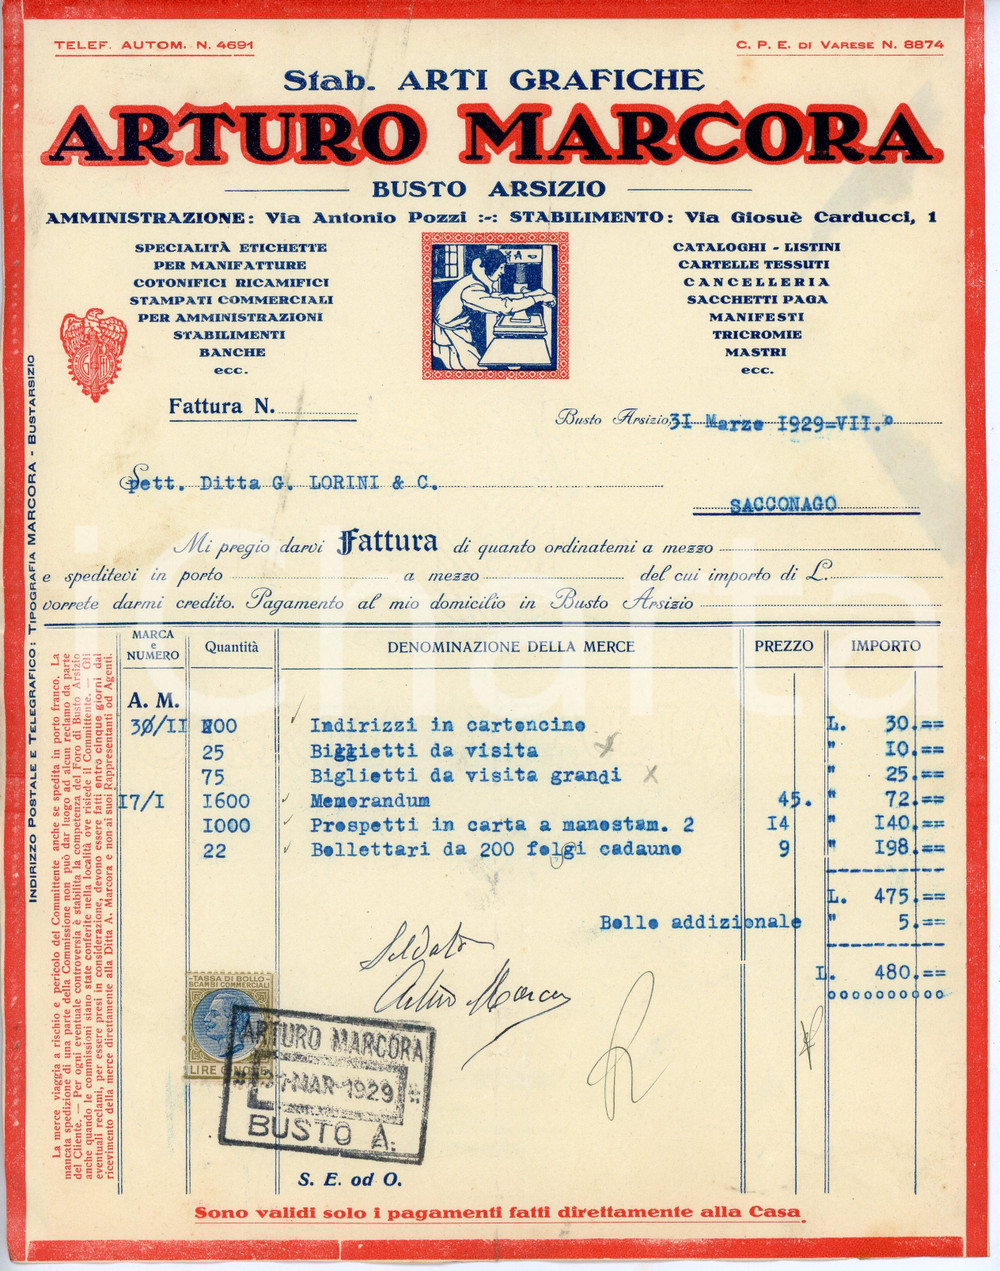 TELEF. AUTOM. N. 4691
C. P. E. DI VARESE N. 8874
Stab. ARTI GRAFICHE
ARTURO MARCORA
BUSTO ARSIZIO
AMMINISTRAZIONE: Via Antonio Pozzi :-: STABILIMENTO: Via Giosuè Carducci, 1
SPECIALITÀ ETICHETTE
PER MANIFATTURE
COTONIFICI RICAMIFICI
STAMPATI COMMERCIALI
PER AMMINISTRAZIONI
STABILIMENTI
BANCHE
ecc.
CATALOGHI - LISTINI
CARTELLE TESSUTI
CANCELLERIA
SACCHETTI PAGA
MANIFESTI
TRICROMIE
MASTRI
ecc.
Fattura N.
Busto Arsizio, 31 Marzo 1929=VII.°
Spett. Ditta G. LORINI & C.
SACCONAGO
Mi pregio darvi Fattura di quanto ordinatemi a mezzo
e speditevi in porto a mezzo del cui importo di L.
vorrete darmi credito. Pagamento al mio domicilio in Busto Arsizio
MARCA e NUMERO Quantità DENOMINAZIONE DELLA MERCE PREZZO IMPORTO
A. M.
30/II 200 Indirizzi in cartoncino L. 30.==
25 Biggietti da visita " 10.==
75 Biglietti da visita grandi " 25.==
17/I 1600 Memorandum 45. " 72.==
1000 Prospetti in carta a manostam. 2 14 " 140.==
22 Bollettari da 200 folgi cadauno 9 " 198.==
L. 475.==
Bollo addizionale " 5.==
L. 480.==
Saldato
Arturo Marcora
TASSA DI BOLLO
SCAMBI COMMERCIALI
LIRE CINQUE
ARTURO MARCORA
31-MAR-1929
BUSTO A.
S. E. od O.
Sono validi solo i pagamenti fatti direttamente alla Casa
INDIRIZZO POSTALE E TELEGRAFICO: TIPOGRAFIA MARCORA - BUSTARSIZIO
La merce viaggia a rischio e pericolo del Committente anche se spedita in porto franco. La
mancata spedizione di una parte della Commissione non può dar luogo ad alcun reclamo da parte
del Cliente. — Per ogni eventuale controversia è stabilita la competenza del Foro di Busto Arsizio
anche quando le commissioni siano state conferite nella località ove risiede il Committente. — Gli
eventuali reclami, per essere presi in considerazione, devono essere fatti entro cinque giorni dal
ricevimento della merce direttamente alla Ditta A. Marcora e non ai suoi Rappresentanti od Agenti.
iCharta